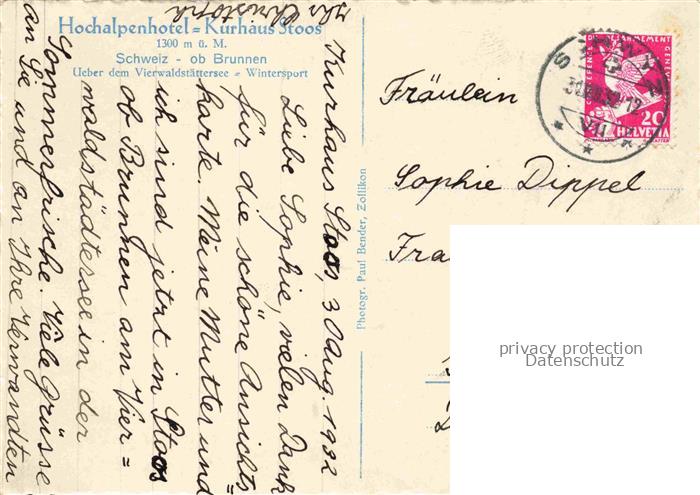 Hochalpenhotel = Kurhaus Stoos
1300 m ü. M.
Schweiz - ob Brunnen
Ueber dem Vierwaldstättersee = Wintersport
Kurhaus Stoos, 30 Aug. 1932
Liebe Sophie, vielen Dank
für die schöne Ansichts
karte. Meine Mutter und
ich sind jetzt in Stoos
ob Brunnen am Vier=
waldstädtersee in der
Sommerfrische. Viele Grüsse
an Sie und an Ihre Verwandten
Christoph
Photogr. Paul Bender, Zollikon
20
HELVETIA
Fräulein
Sophie Dippel
Fra
privacy protection
Datenschutz